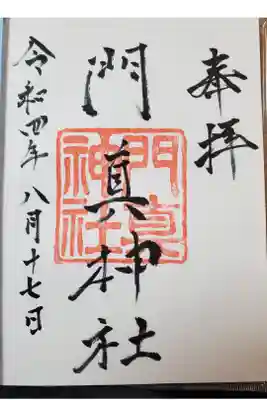 奉拝
門眞神社
門真神社
令和四年八月十七日